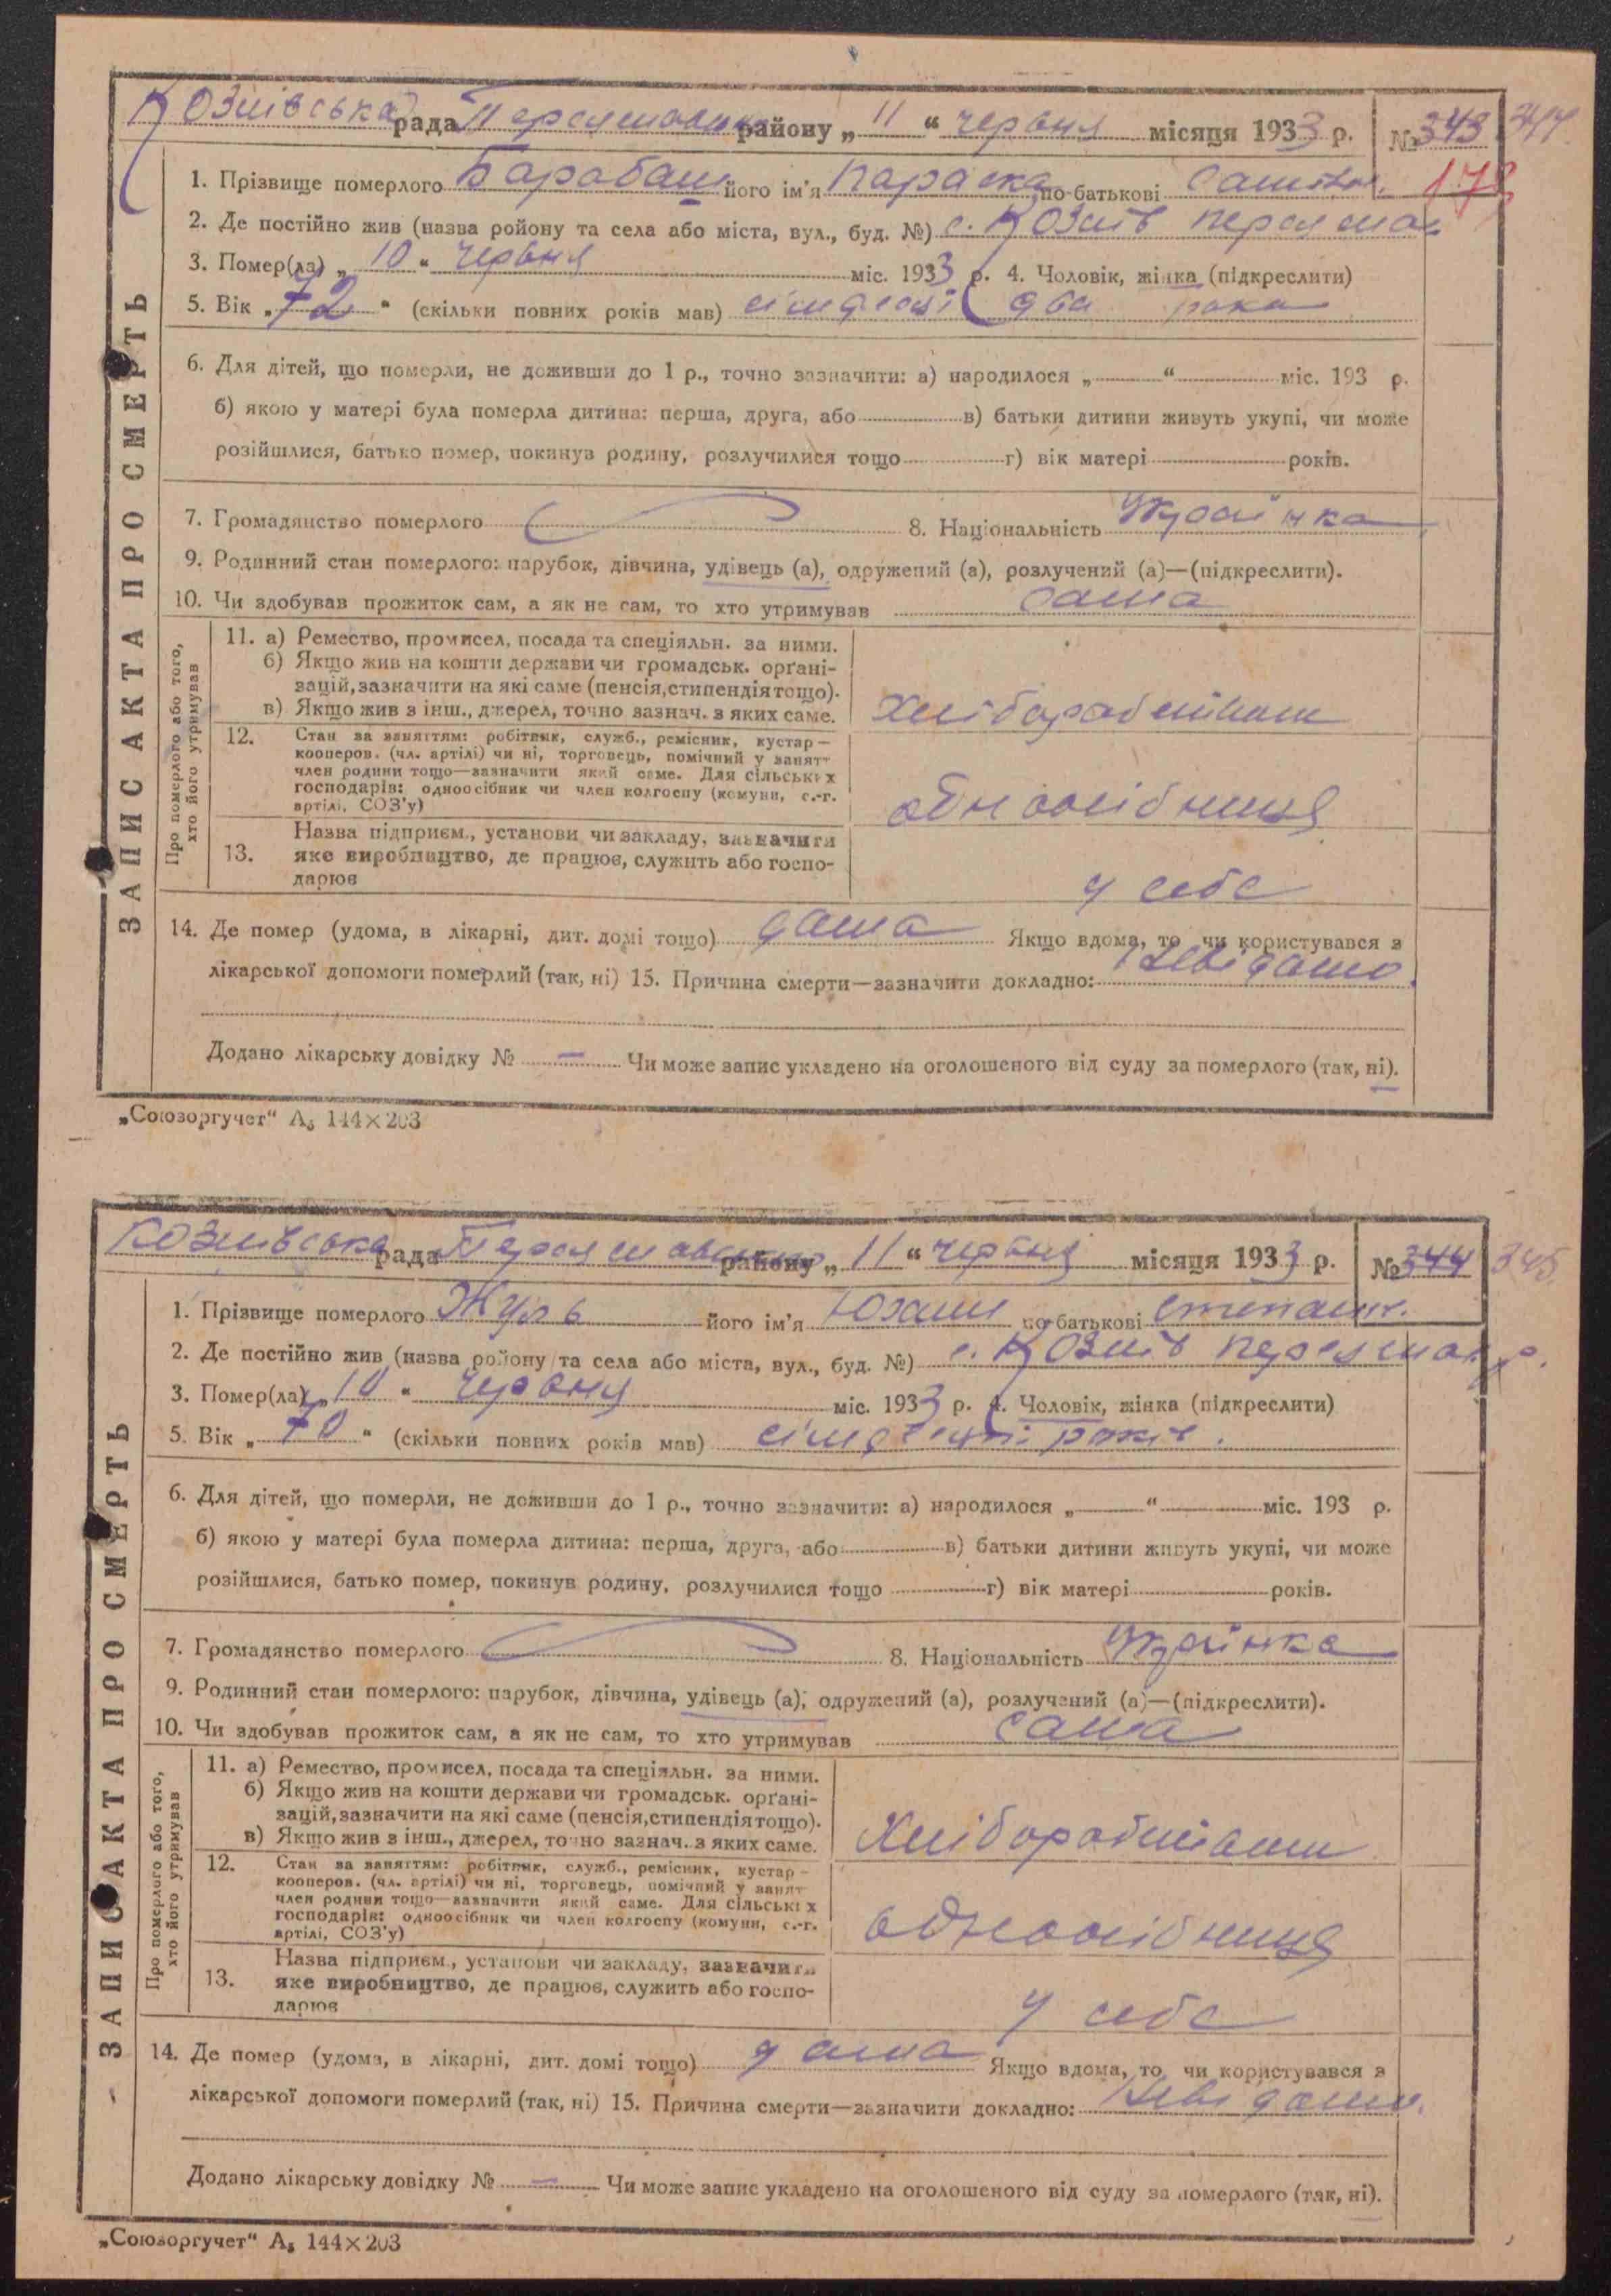 Козлівська рада Переяславськ району „ 11 “ червня місяця 1933 р. № 343 344.
178
1. Прізвище померлого Барабаш його ім'я Параска по-батькові
2. Де постійно жив (назва ройону та села або міста, вул., буд. №) с. Козлів Переяслав
3. Помер(ла) „ 10 “ червня міс. 1933 р. 4. Чоловік, жінка (підкреслити)
5. Вік „ 72 “ (скільки повних років мав) сімдесят два рока
6. Для дітей, що померли, не доживши до 1 р., точно зазначити: а) народилося „ “ міс. 193 р.
б) якою у матері була померла дитина: перша, друга, або в) батьки дитини живуть укупі, чи може
розійшлися, батько помер, покинув родину, розлучилися тощо г) вік матері років.
7. Громадянство померлого 8. Національність Українка
9. Родинний стан померлого: парубок, дівчина, удівець (а), одружений (а), розлучений (а)—(підкреслити).
10. Чи здобував прожиток сам, а як не сам, то хто утримував сама
ЗАПИС АКТА ПРО СМЕРТЬ
Про померлого або того, хто його утримував
11. а) Ремество, промисел, посада та спеціяльн. за ними.
б) Якщо жив на кошти держави чи громадськ. орґані-
зацій, зазначити на які саме (пенсія, стипендія тощо).
в) Якщо жив з інш., джерел, точно зазнач. з яких саме.
12. Стан за заняттям: робітник, служб., ремісник, кустар—
кооперов. (чл. артілі) чи ні, торговець, помічний у занят-
член родини тощо—зазначити який саме. Для сільських
господарів: одноосібник чи член колгоспу (комуни, с.-г.
артілі, СОЗ'у)
одноосібниця
13. Назва підприєм., установи чи закладу, зазначити
яке виробництво, де працює, служить або госпо-
дарює
у себе
14. Де помер (удома, в лікарні, дит. домі тощо) дома Якщо вдома, то чи користувався з
лікарської допомоги померлий (так, ні) 15. Причина смерти—зазначити докладно: Невідомо
Додано лікарську довідку № — Чи може запис укладено на оголошеного від суду за померлого (так, ні).
„Союзоргучет“ А₅ 144×203
Козлівська рада Переяславського району „ 11 “ червня місяця 1933 р. № 344 345.
1. Прізвище померлого його ім'я по-батькові Степан.
2. Де постійно жив (назва ройону та села або міста, вул., буд. №) с. Козлів Переяслав р.
3. Помер(ла) „ 10 “ червня міс. 1933 р. 4. Чоловік, жінка (підкреслити)
5. Вік „ 70 “ (скільки повних років мав) сімдесят років.
6. Для дітей, що померли, не доживши до 1 р., точно зазначити: а) народилося „ “ міс. 193 р.
б) якою у матері була померла дитина: перша, друга, або в) батьки дитини живуть укупі, чи може
розійшлися, батько помер, покинув родину, розлучилися тощо г) вік матері років.
7. Громадянство померлого 8. Національність Українка
9. Родинний стан померлого: парубок, дівчина, удівець (а), одружений (а), розлучений (а)—(підкреслити).
10. Чи здобував прожиток сам, а як не сам, то хто утримував сама
ЗАПИС АКТА ПРО СМЕРТЬ
Про померлого або того, хто його утримував
11. а) Ремество, промисел, посада та спеціяльн. за ними.
б) Якщо жив на кошти держави чи громадськ. орґані-
зацій, зазначити на які саме (пенсія, стипендія тощо).
в) Якщо жив з інш., джерел, точно зазнач. з яких саме.
12. Стан за заняттям: робітник, служб., ремісник, кустар—
кооперов. (чл. артілі) чи ні, торговець, помічний у занят-
член родини тощо—зазначити який саме. Для сільських
господарів: одноосібник чи член колгоспу (комуни, с.-г.
артілі, СОЗ'у)
одноосібниця
13. Назва підприєм., установи чи закладу, зазначити
яке виробництво, де працює, служить або госпо-
дарює
у себе
14. Де помер (удома, в лікарні, дит. домі тощо) дома Якщо вдома, то чи користувався з
лікарської допомоги померлий (так, ні) 15. Причина смерти—зазначити докладно: Невідомо.
Додано лікарську довідку № — Чи може запис укладено на оголошеного від суду за померлого (так, ні).
„Союзоргучет“ А₅ 144×203